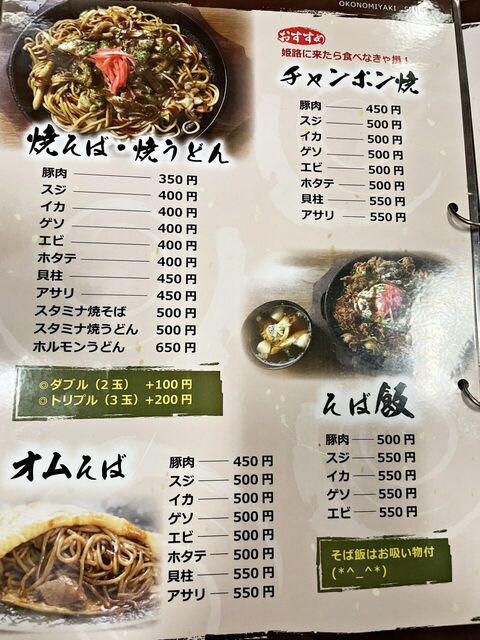 OKONOMIYAKI
焼そば・焼うどん
豚肉 350円
スジ 400円
イカ 400円
ゲソ 400円
エビ 400円
ホタテ 400円
貝柱 450円
アサリ 450円
スタミナ焼そば 500円
スタミナ焼うどん 500円
ホルモンうどん 650円
◎ダブル(2玉) +100円
◎トリプル(3玉) +200円
おすすめ
姫路に来たら食べなきゃ損!
チャンポン焼
豚肉 450円
スジ 500円
イカ 500円
ゲソ 500円
エビ 500円
ホタテ 500円
貝柱 550円
アサリ 550円
そば飯
豚肉 500円
スジ 550円
イカ 550円
ゲソ 550円
エビ 550円
そば飯はお吸い物付
(*^_^*)
オムそば
豚肉 450円
スジ 500円
イカ 500円
ゲソ 500円
エビ 500円
ホタテ 500円
貝柱 550円
アサリ 550円